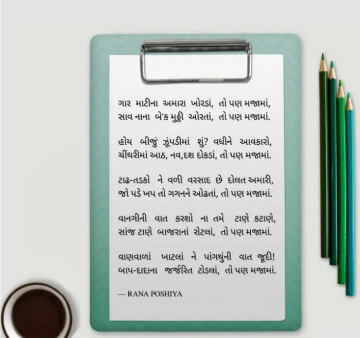 ગાર માટીના અમારા ખોરડાં, તો પણ મજામાં,
સાવ નાના બે'ક મુઠ્ઠી ઓરતાં, તો પણ મજામાં.
હોય બીજું ઝૂંપડીમાં શું? વધીને આવકારો,
ચીંથરીમાં આઠ, નવ,દશ દોકડાં, તો પણ મજામાં.
ટાઢ-તડકો ને વળી વરસાદ છે દોલત અમારી,
જો પડે ખપ તો ગગનને ઓઢતાં, તો પણ મજામાં.
વાનગીની વાત કરશો ના તમે ટાણે કટાણે,
સાંજ ટાણે બાજરાનાં રોટલાં, તો પણ મજામાં.
વાણવાળાં ખાટલાં ને પાંગથુંની વાત જૂદી!
બાપ-દાદાના જર્જરિત ટોડલાં, તો પણ મજામાં.
— RANA POSHIYA